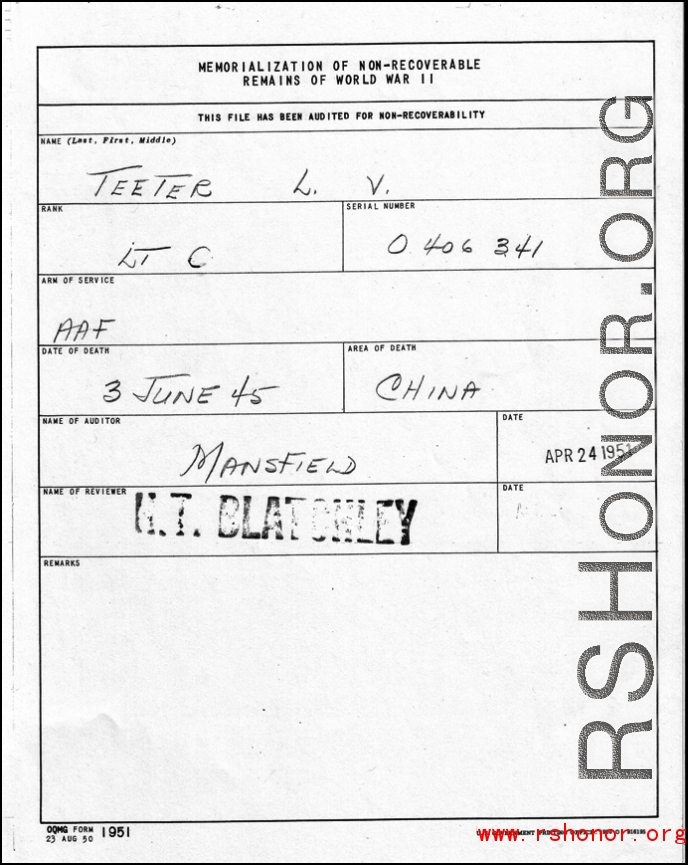 MEMORIALIZATION OF NON-RECOVERABLE
REMAINS OF WORLD WAR II
THIS FILE HAS BEEN AUDITED FOR NON-RECOVERABILITY
NAME (Last, First, Middle)
TEETER L. V.
RANK
LT C
SERIAL NUMBER
O 406 341
ARM OF SERVICE
AAF
DATE OF DEATH
3 JUNE 45
AREA OF DEATH
CHINA
NAME OF AUDITOR
MANSFIELD
DATE
APR 24 1951
NAME OF REVIEWER
H.T. BLATCHLEY
DATE
REMARKS
OQMG FORM 1951
23 AUG 50
www.rshonor.org
RSHONOR.ORG